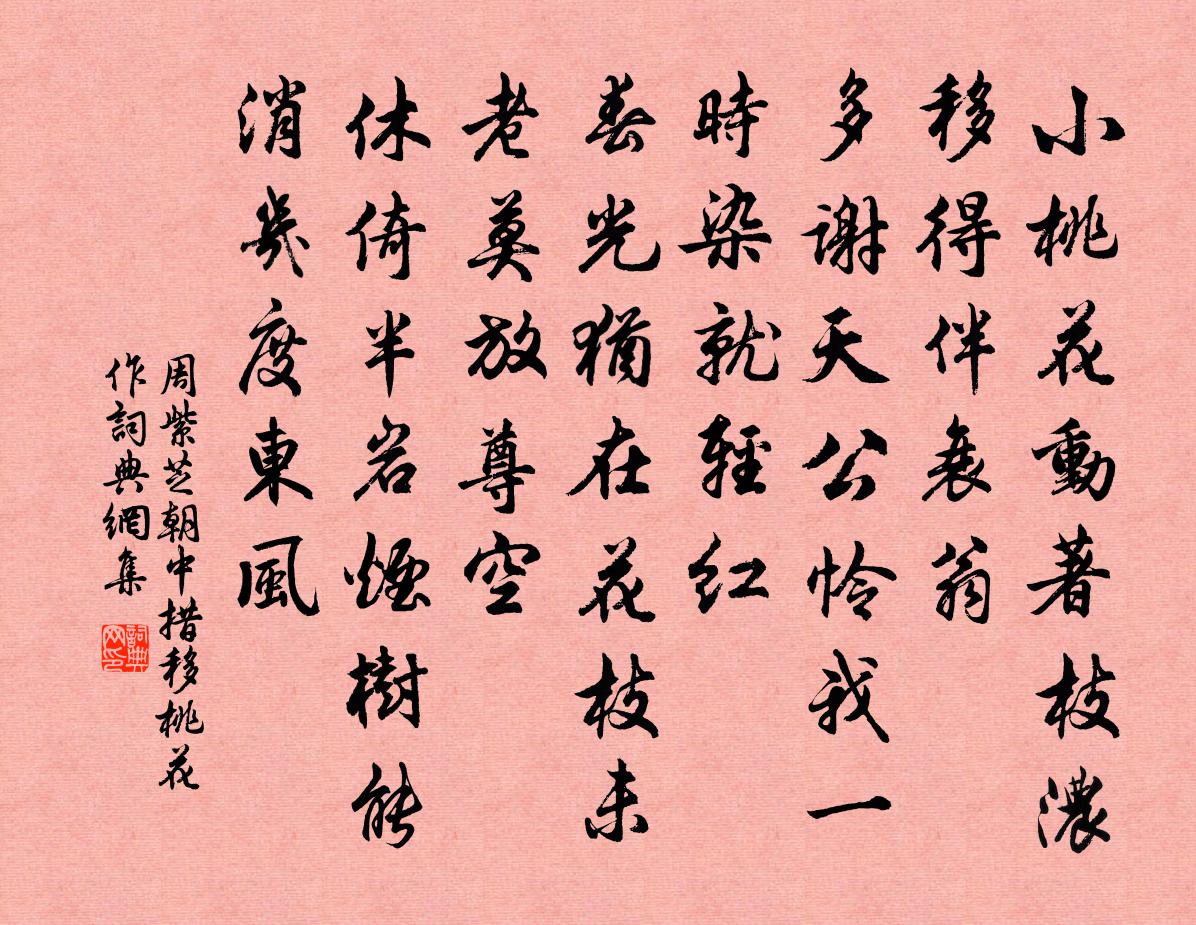 小桃花動著枝濃
移得伴衰翁
多謝天公怜我一
時染就輕红
春光猶在花枝未
老莫放尊空
休倚半岩煙樹能
消幾度東風
周紫芝朝中措移桃花
作詞典網集
詞典
网印